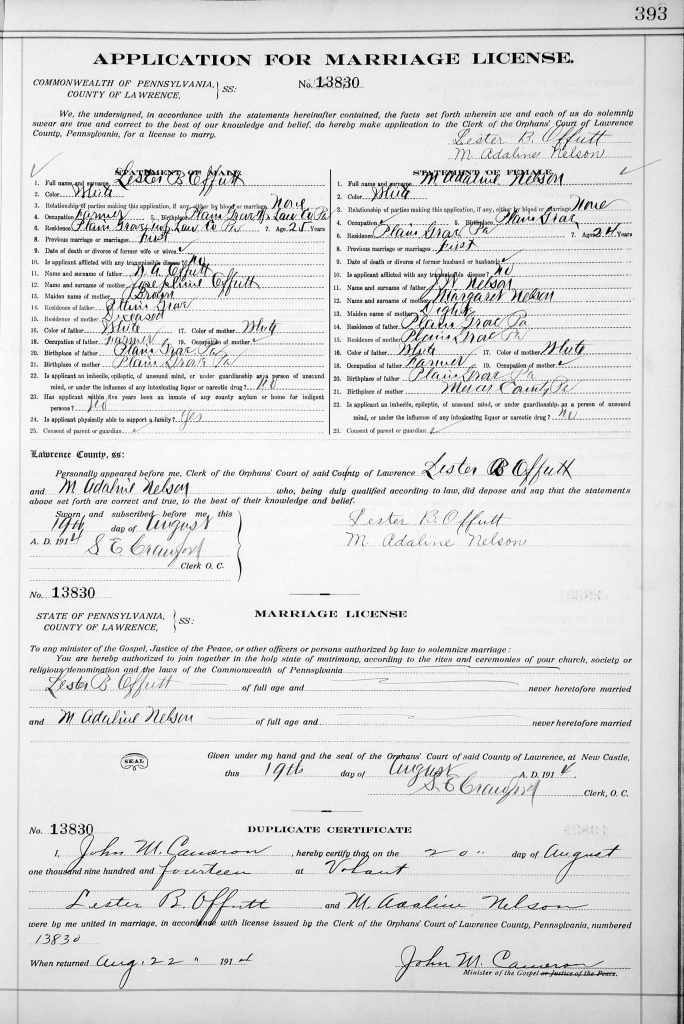 393
APPLICATION FOR MARRIAGE LICENSE.
COMMONWEALTH OF PENNSYLVANIA, COUNTY OF LAWRENCE, } SS: No. 13830
We, the undersigned, in accordance with the statements hereinafter contained, the facts set forth wherein we and each of us do solemnly
swear are true and correct to the best of our knowledge and belief, do hereby make application to the Clerk of the Orphans' Court of Lawrence
County, Pennsylvania, for a license to marry.
Lester B. Offutt
M Adaline Nelson
STATEMENT OF MALE
1. Full name and surname Lester B Offutt
2. Color White
3. Relationship of parties making this application, if any, either by blood or marriage None
4. Occupation Farmer 5. Birthplace Plain Grove Tp Law Co Pa
6. Residence Plain Grove Twp Law Co Pa 7. Age 25 Years
8. Previous marriage or marriages First
9. Date of death or divorce of former wife or wives ✓
10. Is applicant afflicted with any transmissible disease? No
11. Name and surname of father Offutt
12. Name and surname of mother Josephine Offutt
13. Maiden name of mother Brown
14. Residence of father Plain Grove
15. Residence of mother Deceased
16. Color of father White 17. Color of mother White
18. Occupation of father Farmer 19. Occupation of mother ✓
20. Birthplace of father Plain Grove Pa
21. Birthplace of mother Plain Grove Pa
22. Is applicant an imbecile, epileptic, of unsound mind, or under guardianship as a person of unsound
mind, or under the influence of any intoxicating liquor or narcotic drug? No
23. Has applicant within five years been an inmate of any county asylum or home for indigent
persons? No
24. Is applicant physically able to support a family? Yes
25. Consent of parent or guardian ✓
STATEMENT OF FEMALE
1. Full name and surname M Adaline Nelson
2. Color White
3. Relationship of parties making this application, if any, either by blood or marriage None
4. Occupation ✓ 5. Birthplace Plain Grove
6. Residence Plain Grove Pa 7. Age 24
8. Previous marriage or marriages First
9. Date of death or divorce of former husband or husbands ✓
10. Is applicant afflicted with any transmissible disease? No
11. Name and surname of father J W Nelson
12. Name and surname of mother Margaret Nelson
13. Maiden name of mother
14. Residence of father Plain Grove Pa
15. Residence of mother Plain Grove Pa
16. Color of father White 17. Color of mother White
18. Occupation of father Farmer 19. Occupation of mother ✓
20. Birthplace of father Plain Grove Pa
21. Birthplace of mother Mercer County Pa
22. Is applicant an imbecile, epileptic, of unsound mind, or under guardianship as a person of unsound
mind, or under the influence of any intoxicating liquor or narcotic drug? No
23. Consent of parent or guardian ✓
Lawrence County, ss:
Personally appeared before me, Clerk of the Orphans' Court of said County of Lawrence Lester B Offutt
and M Adaline Nelson who, being duly qualified according to law, did depose and say that the statements
above set forth are correct and true, to the best of their knowledge and belief.
Sworn and subscribed before me this
19th day of August
A. D. 1914
S E Crawford
Clerk O. C.
Lester B. Offutt
M Adaline Nelson
No. 13830
STATE OF PENNSYLVANIA, COUNTY OF LAWRENCE, } SS: MARRIAGE LICENSE
To any minister of the Gospel, Justice of the Peace, or other officers or persons authorized by law to solemnize marriage:
You are hereby authorized to join together in the holy state of matrimony, according to the rites and ceremonies of your church, society or
religious denomination and the laws of the Commonwealth of Pennsylvania
Lester B Offutt of full age and never heretofore married
and M Adaline Nelson of full age and never heretofore married
SEAL
Given under my hand and the seal of the Orphans' Court of said County of Lawrence, at New Castle,
this 19th day of August A. D. 1914.
S. E Crawford
Clerk, O. C.
No. 13830 DUPLICATE CERTIFICATE
I, John M. Cameron, hereby certify that on the 20" day of August
one thousand nine hundred and fourteen at Volant
Lester B. Offutt and M. Adaline Nelson
were by me united in marriage, in accordance with license issued by the Clerk of the Orphans' Court of Lawrence County, Pennsylvania, numbered
13830
When returned Aug. 22" 1914
John M. Cameron
Minister of the Gospel or Justice of the Peace.